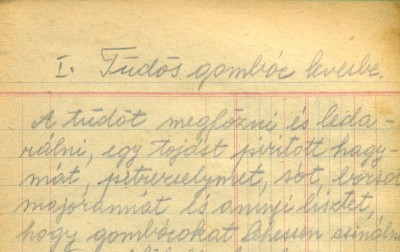 I. Tüdős gombóc levesbe.
A tüdőt megfőzni és leda-
rálni, egy tojást pirított hagy-
mát, petrezselymet, sót, borsot
majorannát és annyi lisztet,
hogy gombócokat lehessen csinálni